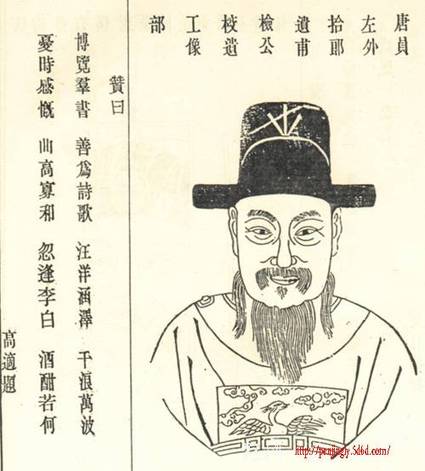 唐左拾遺檢校工部
員外郎甫公遺像
贊曰
博覽羣書 善爲詩歌 汪洋涵澤 千浪萬波
憂時感慨 曲高寡和 忽逢李白 酒酣若何
高適題